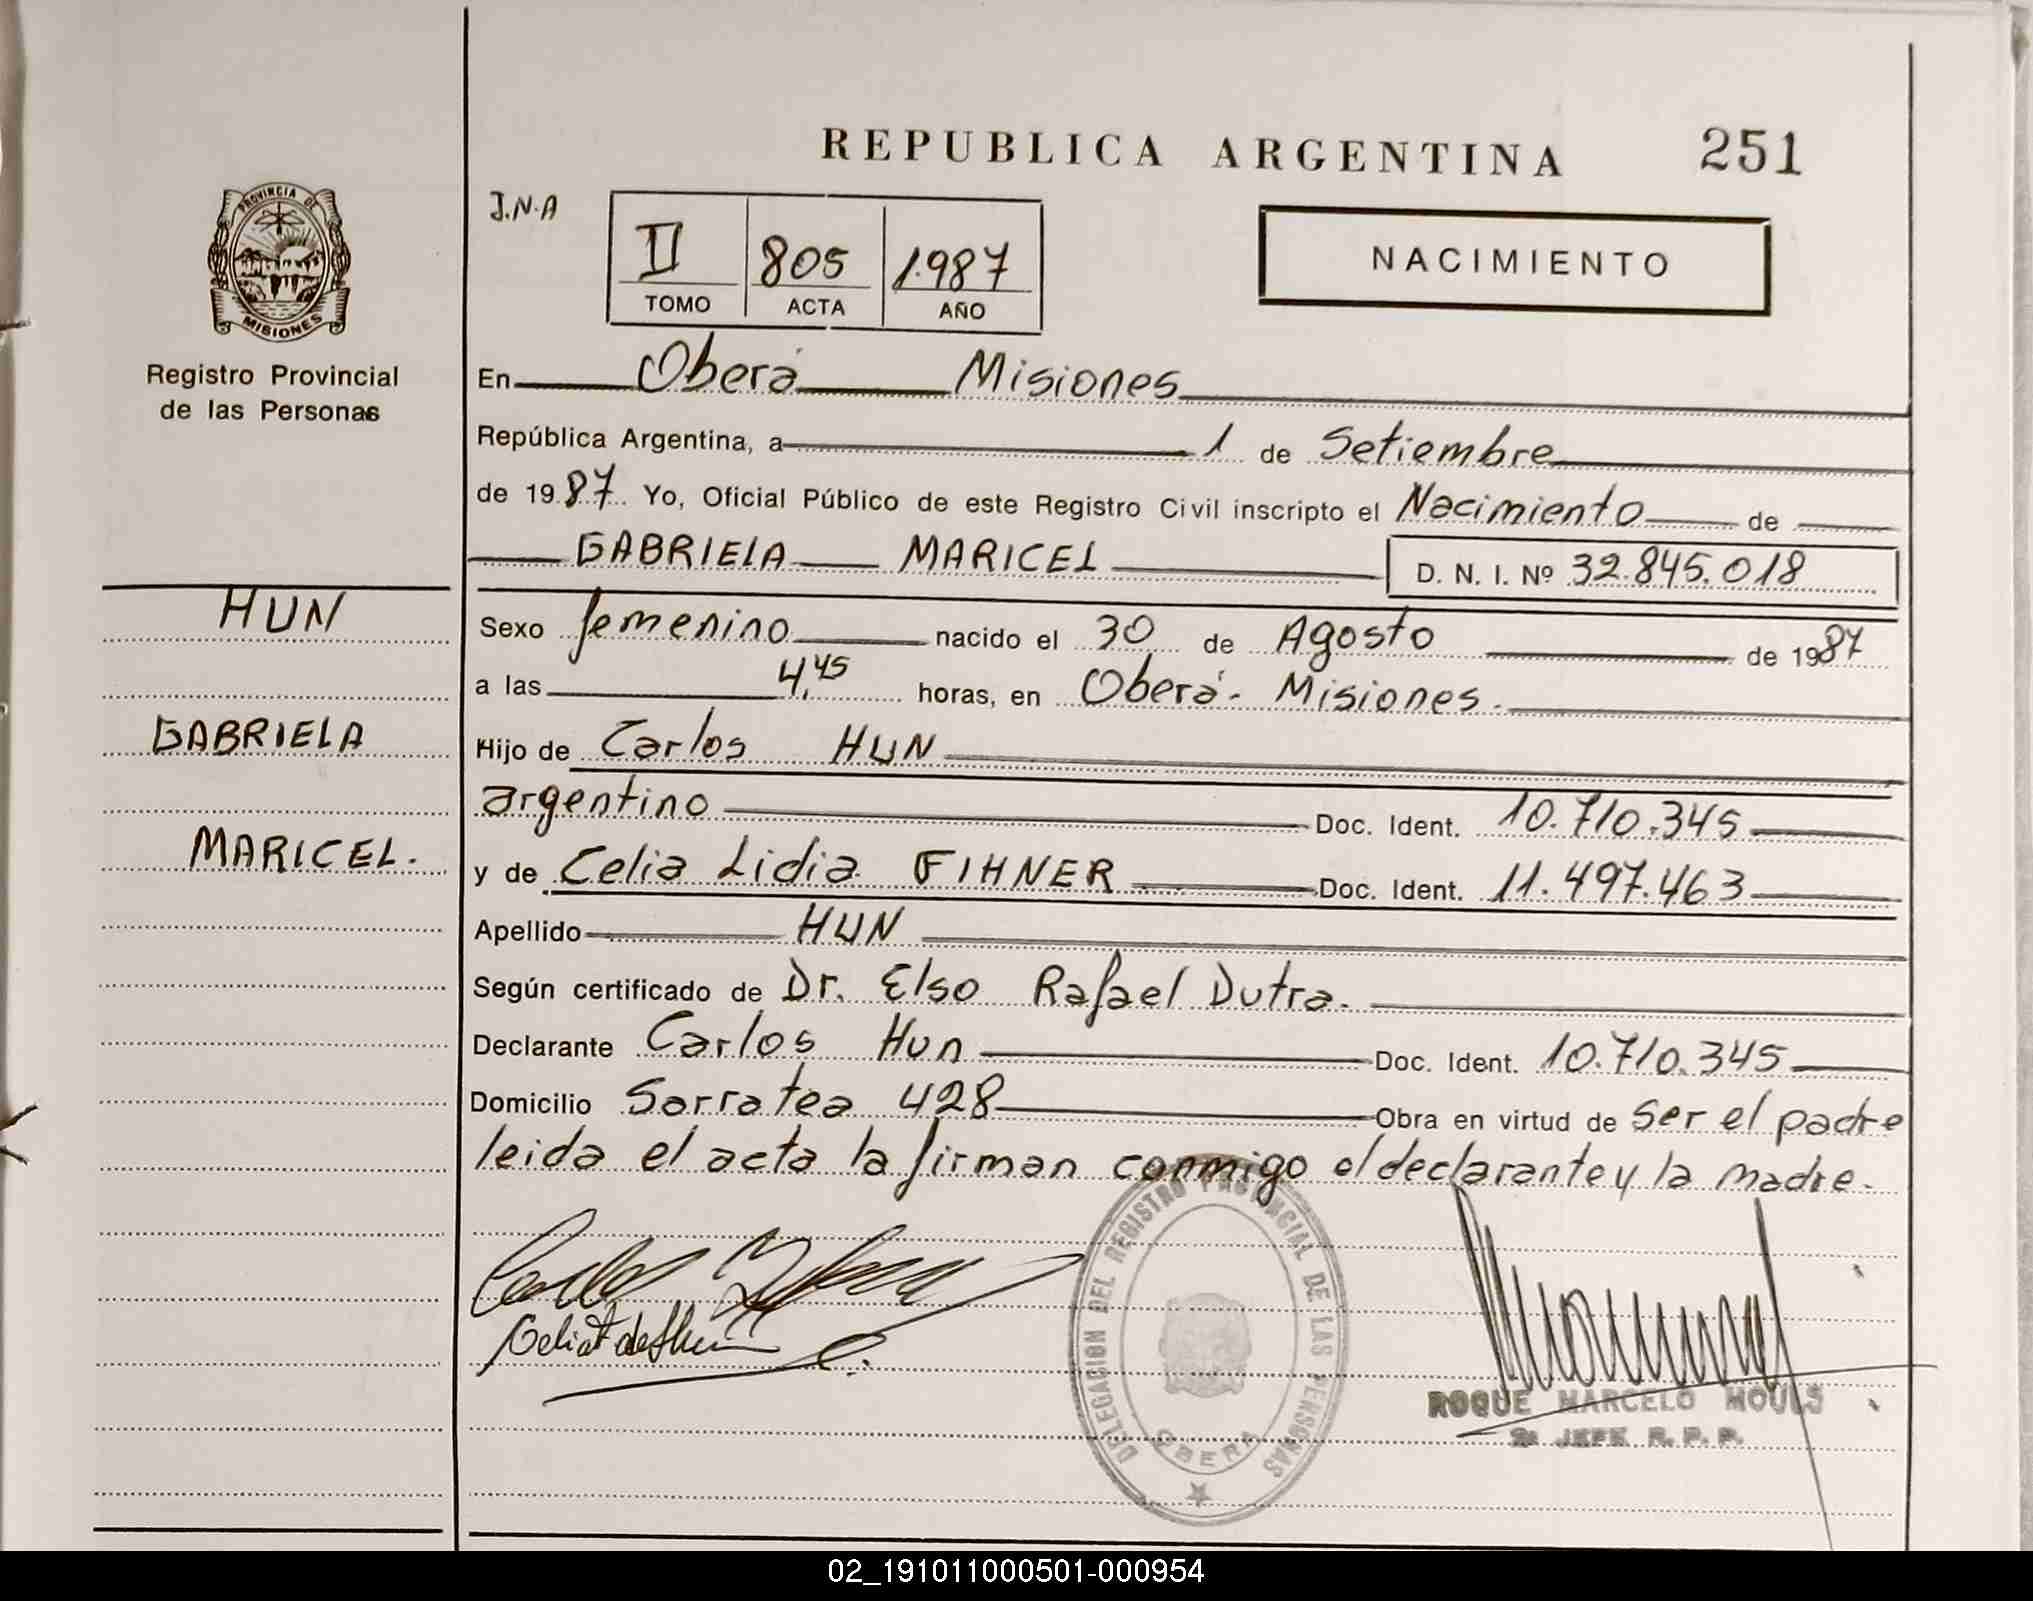 REPUBLICA ARGENTINA 251
PROVINCIA DE
MISIONES
Registro Provincial
de las Personas
J.N.A
II 805 1.987
TOMO ACTA AÑO
NACIMIENTO
En Oberá Misiones
República Argentina, a 1 de Setiembre
de 1987 Yo, Oficial Público de este Registro Civil inscripto el Nacimiento de
GABRIELA MARICEL D. N. I. Nº 32.845.018
HUN
GABRIELA
MARICEL.
Sexo femenino nacido el 30 de Agosto de 1987
a las 4,45 horas, en Oberá - Misiones.
Hijo de Carlos HUN
argentino Doc. Ident. 10.710.345
y de Celia Lidia FIHNER Doc. Ident. 11.497.463
Apellido HUN
Según certificado de Dr. Elso Rafael Dutra.
Declarante Carlos Hun Doc. Ident. 10.710.345
Domicilio Sarratea 428 Obra en virtud de Ser el padre
leida el acta la firman conmigo el declarante y la madre.
DELEGACION DEL REGISTRO PROVINCIAL DE LAS PERSONAS
OBERA
ROQUE MARCELO MOULS
2º JEFE R. P. P.
02_191011000501-000954